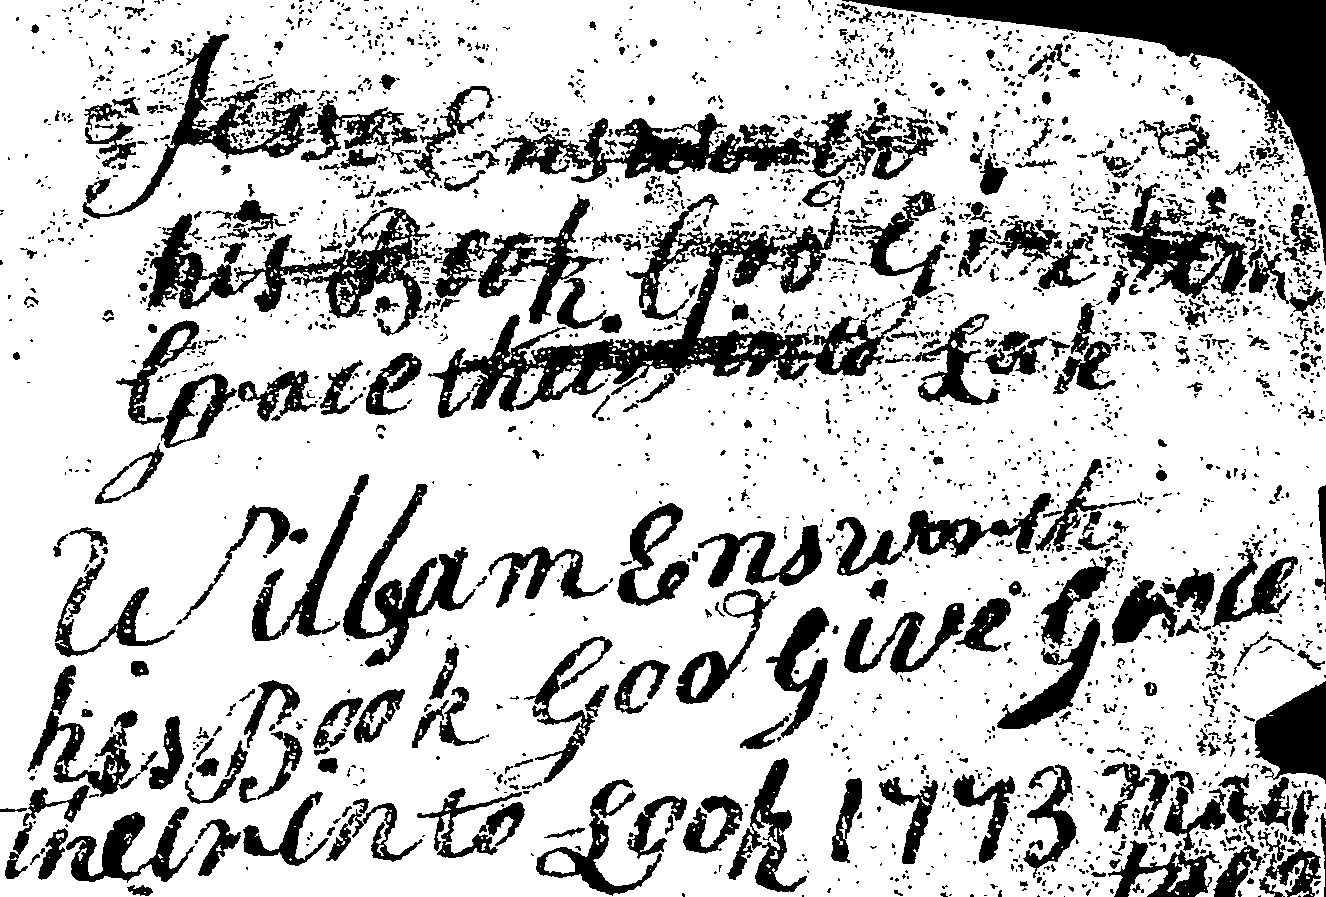 Jesse Ensworth
his Book God Give him
Grace theirin into Look
William Ensworth
his Book God Give Grace
their into Look 1773 May
the